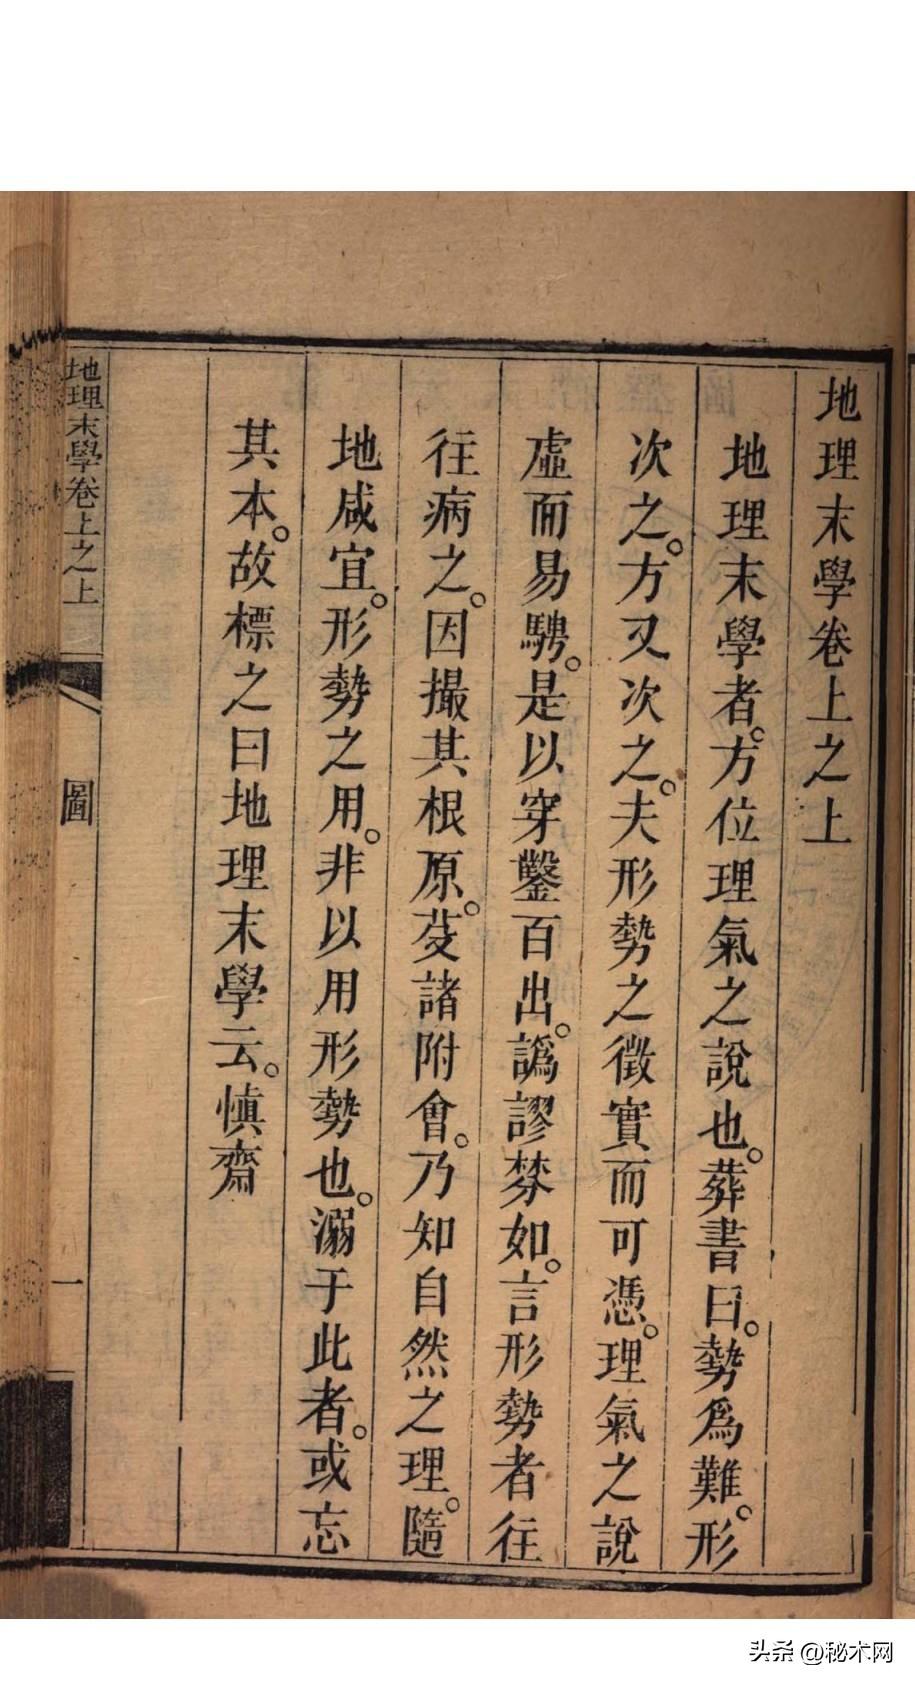 地理末學卷上之上
地理末學者。方位理氣之說也。葬書曰。勢爲難。形
次之。方又次之。夫形勢之徵實而可憑。理氣之說
虛而易騁。是以穿鑿百出。譌謬棼如。言形勢者往
往病之。因撮其根原。芟諸附會。乃知自然之理。隨
地咸宜。形勢之用。非以用形勢也。溺于此者。或忘
其本。故標之曰地理末學云。慎齋
地理末學卷上之上
圖
一
头条 @秘术网